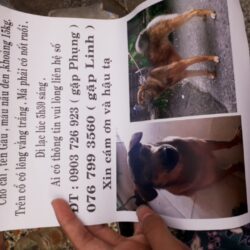 Chó cái , tên Gấu , màu nâu đen ,khoảng 15kg.
Trên cổ có lông vàng trắng . Mà phải có nốt ruồi.
Đi lạc lúc 5h30 sáng .
Ai có thông tin vui lòng liên hệ số
ĐT : 0903 726 923 ( gặp Phụng )
076 799 3560 ( gặp Linh )
Xin cám ơn và hậu tạ